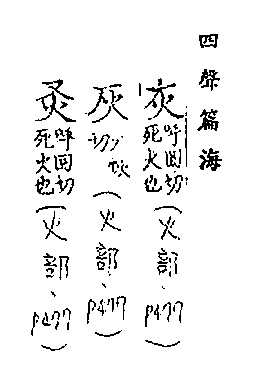 四聲篇海
灾 呼回切 死火也(火部、P477)
灰 切火(火部、P477)
灵 呼回切 死火也(火部、P477)